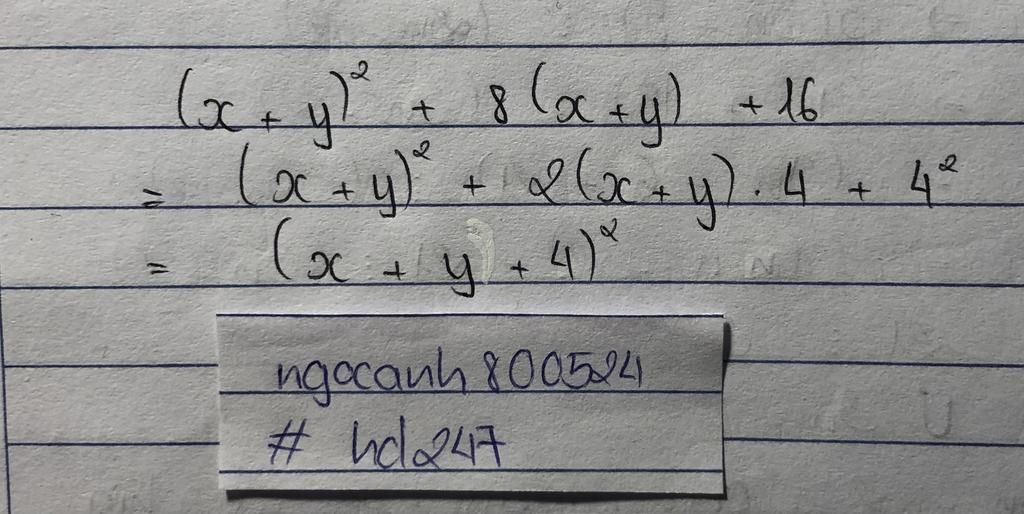 (x + y)² + 8(x + y) + 16
= (x + y)² + 2(x + y) . 4 + 4²
= (x + y + 4)²
ngocanh800524
# hd247